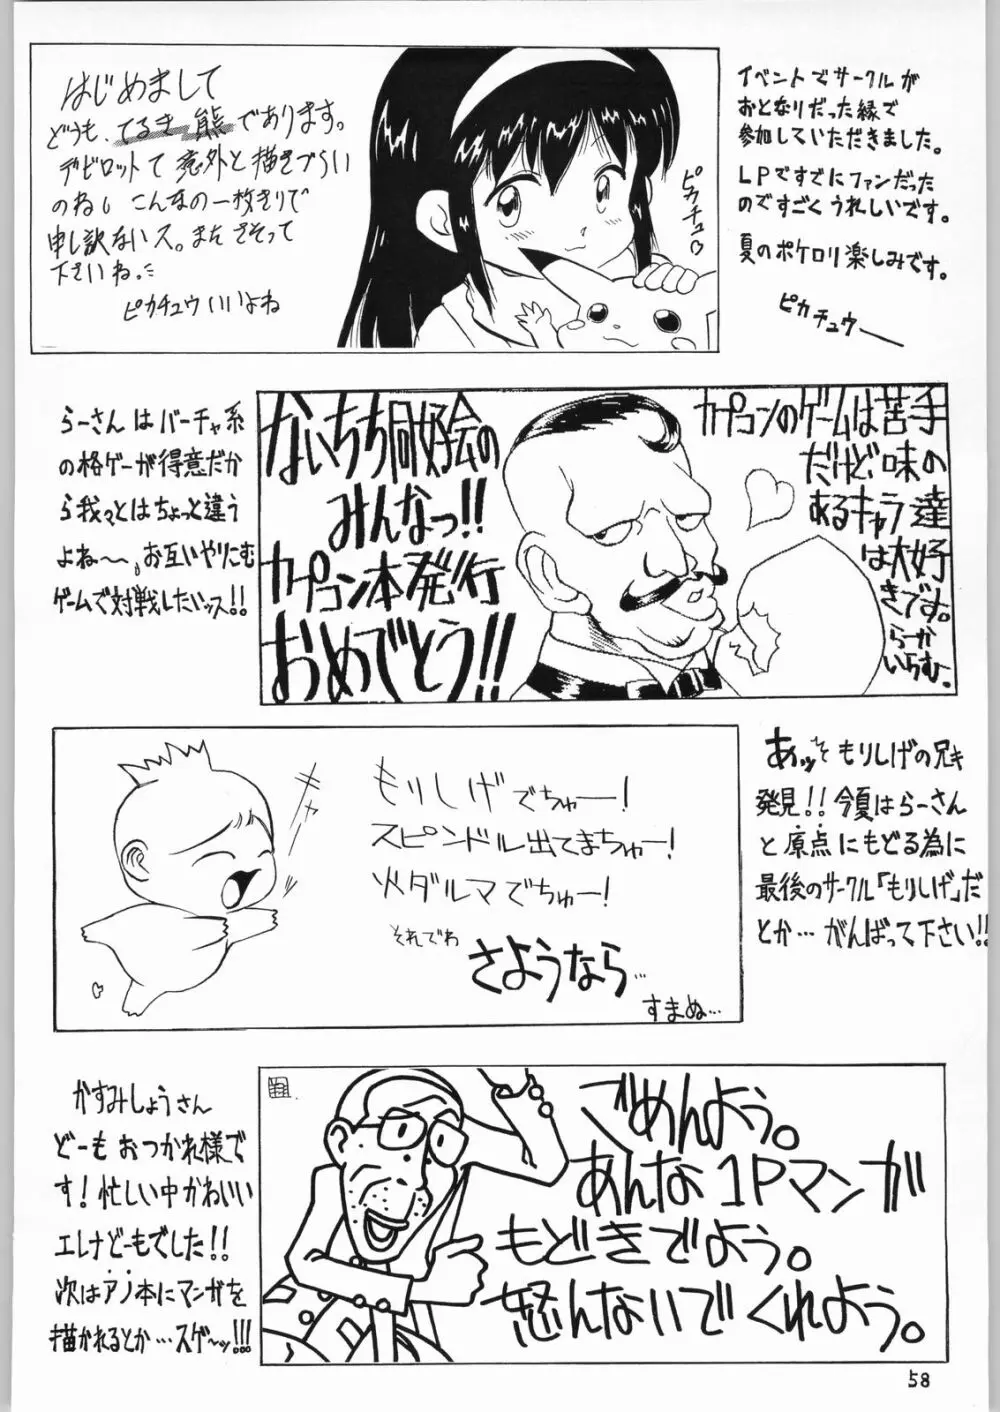 はじめまして
どうも、てるき熊であります。
デビロットて意外と描きづらい
のねし こんなの一枚きりで
申し訳ないス。また さそって
下さいね。
ピカチュウいいよね
ピカチュウ
イベントでサークルが
おとなりだった縁で
参加していただきました。
LPですでにファンだった
のですごくうれしいです。
夏のポケロリ楽しみです。
ピカチュウー
らーさんはバーチャ系
の格ゲーが得意だか
ら我々とはちょっと違う
よね〜。お互いやりこむ
ゲームで対戦したいッス!!
ないちち同好会の
みんなっ!!
カプコン本発行
おめでとう!!
カプコンのゲームは苦手
だけど味の
あるキャラ達
は大好
きです。
らーか
いらむ。
キャー
もりしげでちゅー!
スピンドル出てまちゅー!
火ダルマでちゅー!
それでわ
さようなら…
すまぬ…
あッッそ もりしげの兄き
発見!! 今夏はらーさん
と原点にもどる為に
最後のサークル「もりしげ」だ
とか… がんばって下さい!!
かすみしょうさん
どーも おつかれ様で
す! 忙しい中かわいい
エレナどーもでした!!
次はアノ本にマンガを
描かれるとか…スゲ〜ッ!!!
ごめんよう。
あんな1Pマンガ
もどきでよう。
怒んないでくれよう。
58